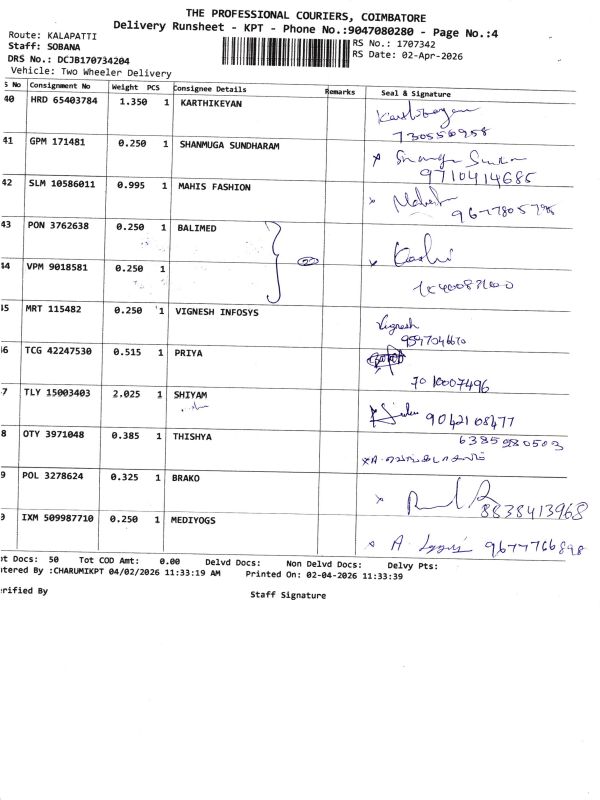 THE PROFESSIONAL COURIERS, COIMBATORE
Delivery Runsheet - KPT - Phone No.:9047080280 - Page No.:4
Route: KALAPATTI
RS No.: 1707342
Staff: SOBANA
RS Date: 02-Apr-2026
DRS No.: DCJB170734204
Vehicle: Two Wheeler Delivery
S No Consignment No Weight PCS Consignee Details Remarks Seal & Signature
40 HRD 65403784 1.350 1 KARTHIKEYAN Karthikeyan
7305556958
41 GPM 171481 0.250 1 SHANMUGA SUNDHARAM
9710414685
42 SLM 10586011 0.995 1 MAHIS FASHION
9677805798
43 PON 3762638 0.250 1 BALIMED
44 VPM 9018581 0.250 1
45 MRT 115482 0.250 1 VIGNESH INFOSYS Vignesh
9597046670
46 TCG 42247530 0.515 1 PRIYA
7010007496
7 TLY 15003403 2.025 1 SHIYAM 9042108477
8 OTY 3971048 0.385 1 THISHYA 6385980503
9 POL 3278624 0.325 1 BRAKO
8838413968
0 IXM 509987710 0.250 1 MEDIYOGS
9677766898
ot Docs: 50 Tot COD Amt: 0.00 Delvd Docs: Non Delvd Docs: Delvy Pts:
ntered By :CHARUMIKPT 04/02/2026 11:33:19 AM Printed On: 02-04-2026 11:33:39
erified By
Staff Signature